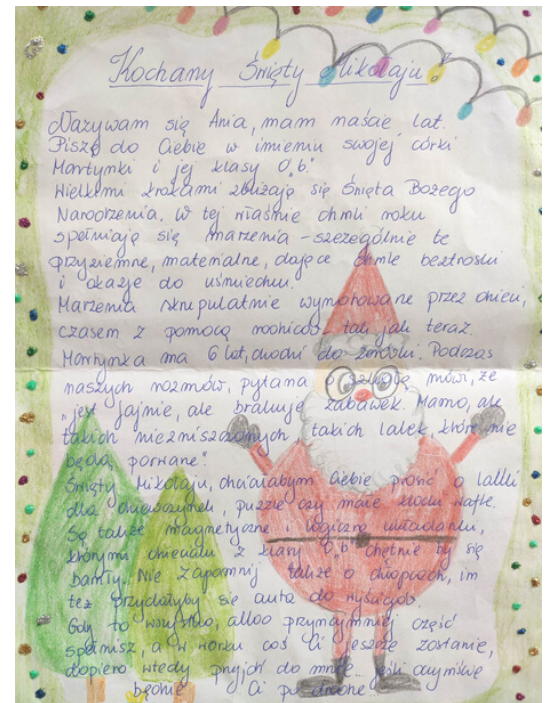 Kochany Święty Mikołaju!
Nazywam się Ania, mam naście lat.
Piszę do Ciebie w imieniu swojej córki
Martynki i jej klasy 0„b"
Wielkimi krokami zbliżają się Święta Bożego
Narodzenia. W tej właśnie chwili roku
spełniają się marzenia - szczególnie te
przyziemne, materialne, dające chwile beztroski
i okazje do uśmiechu.
Marzenia skrupulatnie wynotowane przez dzieci,
czasem z pomocą rodziców tak jak teraz.
Martynka ma 6 lat, chodzi do zerówki. Podczas
naszych rozmów, pytana o szkołę mówi, że
„jest fajnie, ale brakuje zabawek. Mamo, ale
takich niezniszczonych, takich lalek, które nie
będą porwane."
Święty Mikołaju, chciałabym Ciebie prosić o lalki
dla dziewczynek, puzzle czy małe klocki wafle.
Są także magnetyczne i logiczne układanki,
którymi dzieciaki z klasy 0„b" chętnie by się
bawiły. Nie zapomnij także o chłopcach, im
też przydałyby się auta do wyścigów.
Gdy to wszystko, albo przynajmniej część
spełnisz, a w worku coś Ci jeszcze zostanie,
dopiero wtedy przyjdź do mnie... jeśli oczywiście
będzie Ci po drodze...